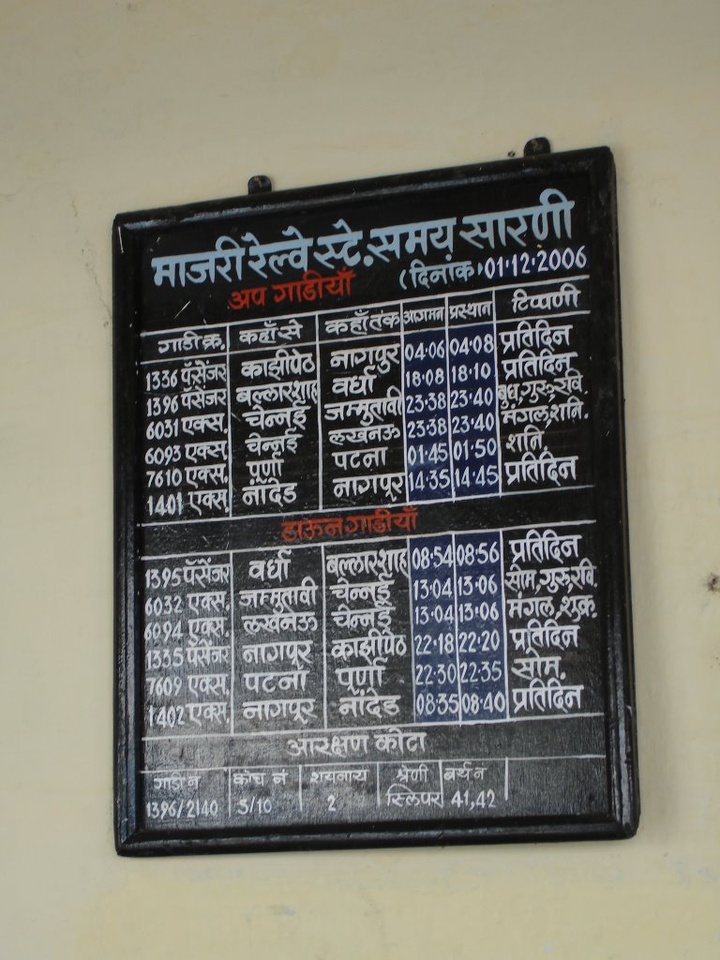 माजरी रेल्वे स्टे. समय सारणी
अप गाडीयाँ (दिनांक) 01.12.2006
गाडी क्र. कहाँ से कहाँ तक आगमन प्रस्थान टिप्पणी
1336 पॅसेंजर काझीपेठ नागपुर 04.06 04.08 प्रतिदिन
1396 पॅसेंजर बल्लारशाह वर्धा 18.08 18.10 प्रतिदिन
6031 एक्स. चेन्नई जम्मुतावी 23.38 23.40 बुध, गुरु, रवि
6093 एक्स. चेन्नई लखनऊ 23.38 23.40 मंगल, शनि.
7610 एक्स. पूर्णा पटना 01.45 01.50 शनि
1401 एक्स. नाँदेड नागपूर 14.35 14.45 प्रतिदिन
डाऊन गाडीयाँ
1395 पॅसेंजर वर्धा बल्लारशाह 08.54 08.56 प्रतिदिन
6032 एक्स. जम्मुतावी चेन्नई 13.04 13.06 सोम, गुरु, रवि.
6094 एक्स. लखनऊ चेन्नई 13.04 13.06 मंगल, शुक्र.
1335 पॅसेंजर नागपूर काझीपेठ 22.18 22.20 प्रतिदिन
7609 एक्स. पटना पूर्णा 22.30 22.35 सोम.
1402 एक्स. नागपूर नाँदेड 08.35 08.40 प्रतिदिन
आरक्षण कोटा
गाडी नं कोच नं शयनाय श्रेणी बर्थ न
1396/2140 S/10 2 स्लिपर 41,42